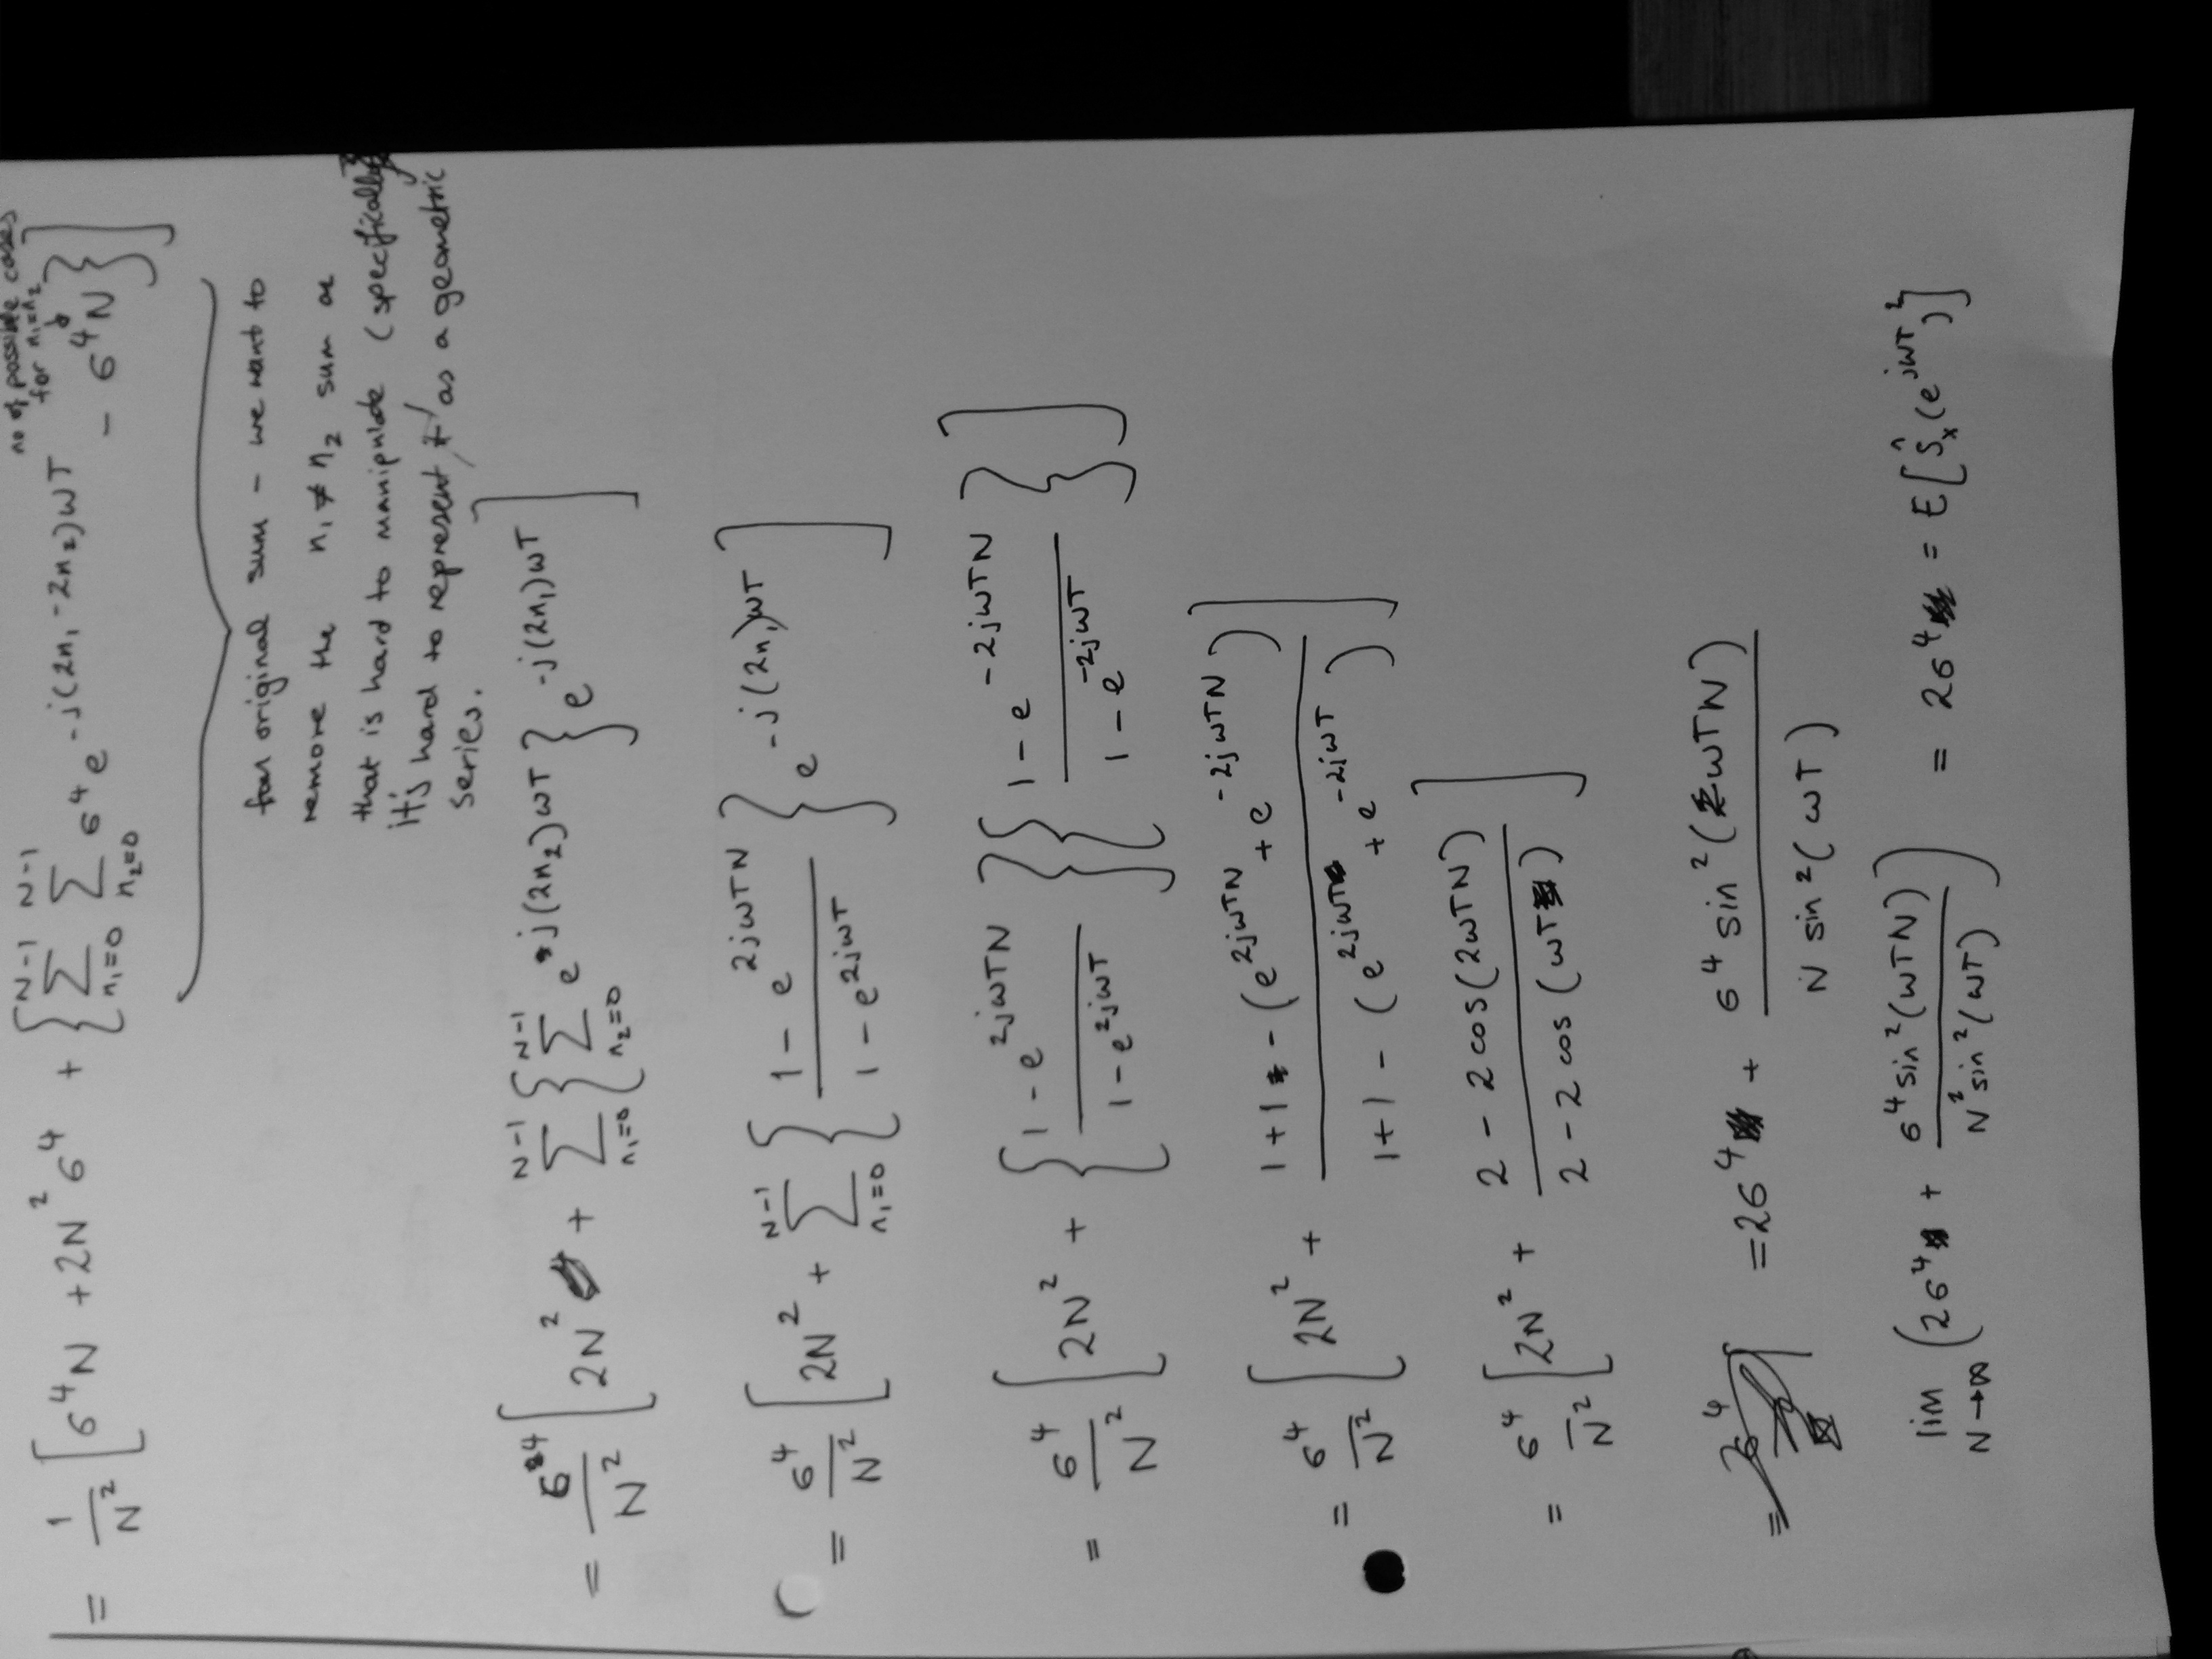 no of possible cases
for n₁=n₂
= 1/N² [ σ⁴N + 2N²σ⁴ + { Σ_{n₁=0}^{N-1} Σ_{n₂=0}^{N-1} σ⁴ e^{-j(2n₁-2n₂)ωT} - σ⁴N } ]
original sum - we want to
remove the n₁ ≠ n₂ sum as
that is hard to manipulate (specifically
it's hard to represent it as a geometric
series.
= σ⁴/N² [ 2N² + Σ_{n₁=0}^{N-1} { Σ_{n₂=0}^{N-1} e^{j(2n₂)ωT} } e^{-j(2n₁)ωT} ]
= σ⁴/N² [ 2N² + Σ_{n₁=0}^{N-1} { (1 - e^{2jωTN}) / (1 - e^{2jωT}) } e^{-j(2n₁)ωT} ]
= σ⁴/N² [ 2N² + { (1 - e^{2jωTN}) / (1 - e^{2jωT}) } { (1 - e^{-2jωTN}) / (1 - e^{-2jωT}) } ]
= σ⁴/N² [ 2N² + (1+1 - (e^{2jωTN} + e^{-2jωTN})) / (1+1 - (e^{2jωT} + e^{-2jωT})) ]
= σ⁴/N² [ 2N² + (2 - 2cos(2ωTN)) / (2 - 2cos(ωT)) ]
= 2σ⁴ + σ⁴ sin²(ωTN) / N sin²(ωT)
lim_{N→∞} ( 2σ⁴ + σ⁴ sin²(ωTN) / N² sin²(ωT) ) = 2σ⁴ = E[Ŝₓ(e^{jωT})²]